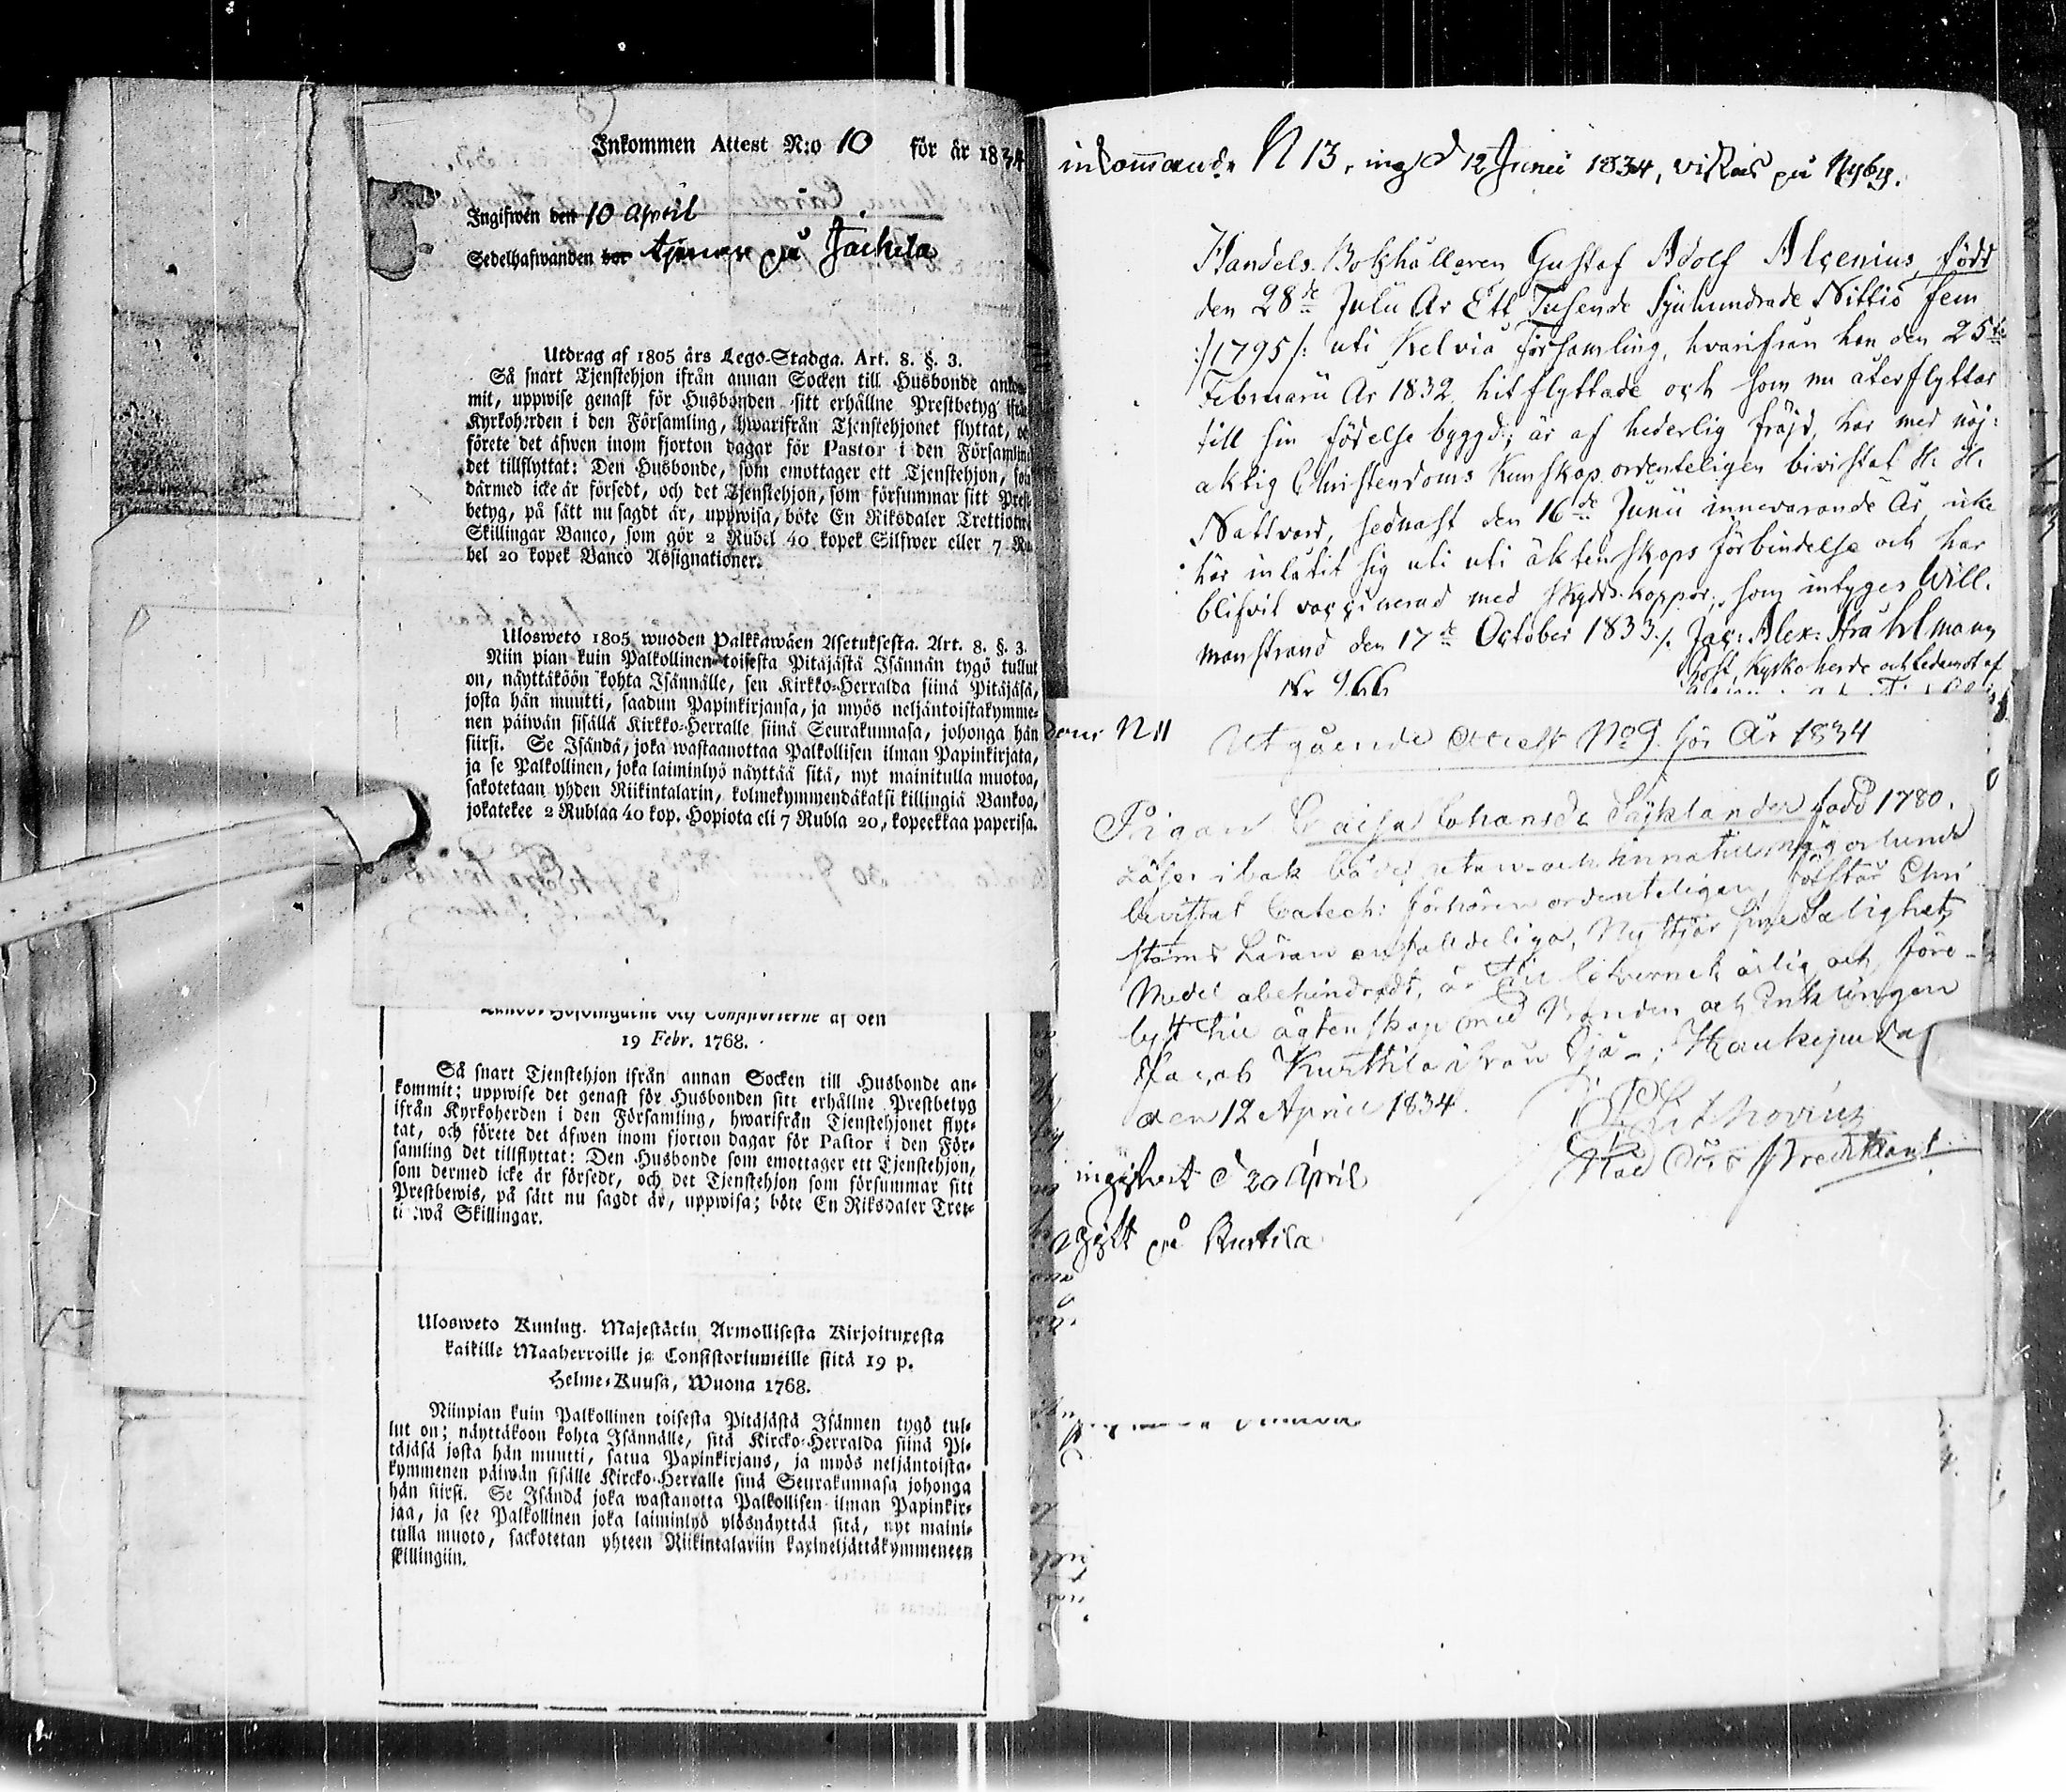 Inkommen Attest N:o 10 för år 1834
Ingifwen den 10 April
Sedelhafwanden bor tjenar på Jäckilä
Utdrag af 1805 års Lego-Stadga. Art. 8. §. 3.
Så snart Tjenstehjon ifrån annan Socken till Husbonde
mit, uppwise genast för Husbonden sitt erhållne Prestbetyg ifrån
Kyrkoherden i den Församling, hwarifrån Tjenstehjonet flyttat,
förete det äfwen inom fjorton dagar för Pastor i den Församling
det tillflyttat: Den Husbonde, som emottager ett Tjenstehjon, som
därmed icke är försedt, och det Tjenstehjon, som försummar sitt Prest-
betyg, på sätt nu sagdt är, uppwisa, böte En Riksdaler Trettiotwå
Skillingar Banco, som gör 2 Rubel 40 kopek Silfwer eller 7 Ru-
bel 20 kopek Banco Assignationer.
Ulosweto 1805 wuoden Palkkawäen Asetuksesta. Art. 8. §. 3.
Niin pian kuin Palkollinen toisesta Pitäjästä Isännän tygö tullut
on, näyttäköön kohta Isännälle, sen Kirkko-Herralda siinä Pitäjäsä,
josta hän muutti, saadun Papinkirjansa, ja myös neljäntoistakymme-
nen päiwän sisällä Kirkko-Herralle siinä Seurakunnasa, johonga hän
siirsi. Se Isändä, joka wastaanottaa Palkollisen ilman Papinkirjata,
ja se Palkollinen, joka laiminlyö näyttää sitä, nyt mainitulla muotoa,
sakotetaan yhden Riikintalarin, kolmekymmendäkaksi killingiä Bankoa,
jokatekee 2 Rublaa 40 kop. Hopiota eli 7 Rubla 20, kopeekkaa paperisa.
af den
19 Febr. 1768.
Så snart Tjenstehjon ifrån annan Socken till Husbonde an-
kommit; uppwise det genast för Husbonden sitt erhållne Prestbetyg
ifrån Kyrkoherden i den Församling, hwarifrån Tjenstehjonet flyt-
tat, och förete det äfwen inom fjorton dagar för Pastor i den För-
samling det tillflyttat: Den Husbonde som emottager ett Tjenstehjon,
som dermed icke är försedt, och det Tjenstehjon som försummar sitt
Prestbewis, på sätt nu sagdt är, uppwisa; böte En Riksdaler Tret-
ti twå Skillingar.
Ulosweto Kuning. Majestätin Armollisesta Kirjoituxesta
kaikille Maaherroille ja Consistoriumeille siitä 19 p.
Helme-Kuusa, Wuona 1768.
Niinpian kuin Palkollinen toisesta Pitäjästä Isännen tygö tul-
lut on; näyttäkoon kohta Isännälle, sitä Kircko-Herralda siinä Pi-
täjäsä josta hän muutti, satua Papinkirjans, ja myös neljäntoista-
kymmenen päiwän sisälle Kircko-Herralle sinä Seurakunnasa johonga
hän siirsi. Se Isändä joka wastanotta Palkollisen ilman Papinkir-
jaa, ja see Palkollinen joka laiminlyö ylösnäyttää sitä, nyt maini-
tulla muoto, sackotetan yhteen Riikintalariin kaxineljättäkymmeneen
skillingiin.
inkommande N 13, ing d 12 Junii 1834, vistas på Nyby.
Handels Bokhållaren Gustaf Adolf Alcenius, född
den 28de Julii År Ett Tusende Sjuhundrade Nittio fem
/:1795/: uti Kelviå Församling, hvarifrån han den 25te
Februarii År 1832 hit flyttade och som nu återflyttar
till sin födelse byggd; är af hederlig fräjd, har med nöj-
aktig Christendoms Kunskap ordenteligen bivistat H. H.
Nattvard, sednast den 16de Junii innevarande År, icke
här inlåtit sig uti uti äktenskaps förbindelse och har
blifvit vaccinerad med skydds-koppor, som intyges Will.
manstrand den 17de October 1833. Jac: Alex: Strahlmann
Prost, Kyrkoherde och Ledamot af
Nr 966
N 11
Utgående Attest No 9 för År 1834
Pigan Caisa Johansdr Säyklander född 1780.
Läser i bok både utan- och innantill någorlunda
bevistat Catech: förhören ordenteligen, förstår Chri-
stoms Läran enfaldeliga, Nyttjar sine Salighets
Medel obehindradt, är till lefvernet ärlig och
lyst till ägtenskap med Bonden och Enklingen
Jacob Kurttila ifrån Ijå; Haukipudas
den 12 April 1834.
ingifvit d 20 April
gift på Kurtila